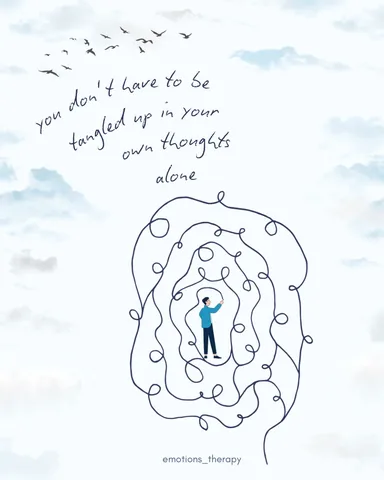 you don't have to be
tangled up in your
own thoughts
alone
emotions_therapy